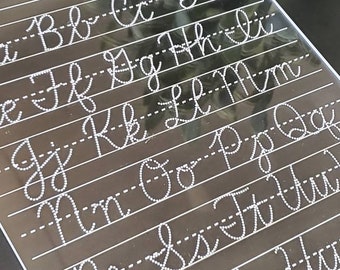 a Bb Cc
e Ff Gg Hh Ii
Jj Kk Ll Mm
Nn Oo Pp Qq
Ss Tt Uu